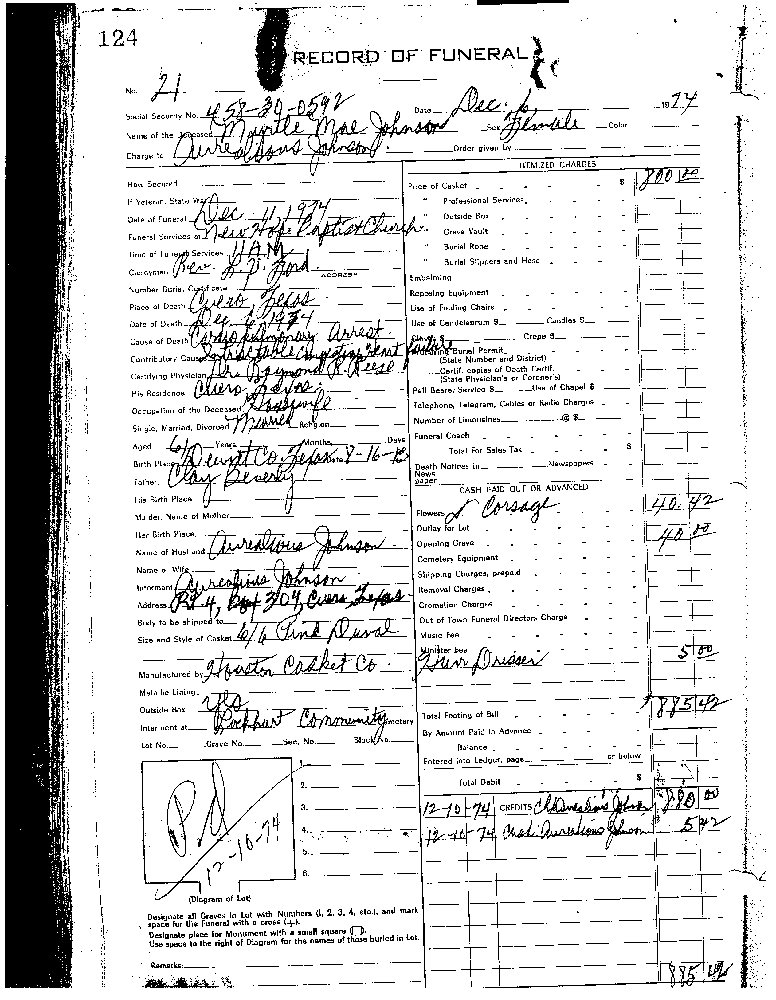 124
RECORD OF FUNERAL
No. 21
Social Security No. 458-30-0592 Date Dec. 6, 1974
Name of the Deceased Myrtle Mae Johnson Sex Female Color
Charge to Aurealious Johnson Order given by
How Secured
If Veteran, State War
Date of Funeral Dec 11, 1974
Funeral Services at New Hope Baptist Church
Time of Funeral Services 11 A.M.
Clergyman Rev. L. P. Ford ADDRESS
Number Burial Certificate
Place of Death Cuero, Texas
Date of Death Dec 6, 1974
Cause of Death Cardiopulmonary Arrest
Contributory Cause Intractable Congestive Heart Failure
Certifying Physician Dr. Raymond R. Reese
His Residence Cuero, Texas
Occupation of the Deceased Housewife
Single, Married, Divorced Married Religion
Aged 61 Years Months, Days
Birth Place Dewitt Co. Texas 8-16-
Father Clay Beverly
His Birth Place
Maiden Name of Mother
Her Birth Place
Name of Husband Aurealious Johnson
Name of Wife
Informant Aurealious Johnson
Address Rt 4, Box 304, Cuero, Texas
Body to be shipped to
Size and Style of Casket 6/6 Pink Duval
Manufactured by Houston Casket Co.
Metallic Lining
Outside Box Yes
Interment at Lockhart Community Cemetery
Lot No. Grave No. Sec. No. Block No.
1.
2.
3.
4.
5.
6.
Pd
12-10-74
(Diagram of Lot)
Designate all Graves in Lot with Numbers (1, 2, 3, 4, etc.), and mark
space for the Funeral with a cross (+).
Designate place for Monument with a small square (□).
Use space to the right of Diagram for the names of those buried in Lot.
Remarks:
ITEMIZED CHARGES
Price of Casket $ 800 00
" Professional Services
" Outside Box
" Grave Vault
" Burial Robe
" Burial Slippers and Hose
Embalming
Reposing Equipment
Use of Folding Chairs
Use of Candelabrum $ Candles $
Crepe $
Burial Permit
(State Number and District)
Certif. copies of Death Certif.
(State Physician's or Coroner's)
Pall Bearer Service $ Use of Chapel $
Telephone, Telegram, Cables or Radio Charges
Number of Limousines @ $
Funeral Coach
Total For Sales Tax $
Death Notices in Newspapers
News
paper
CASH PAID OUT OR ADVANCED
Flowers & Corsage 40.42
Outlay for Lot
Opening Grave 40 00
Cemetery Equipment
Shipping Charges, prepaid
Removal Charges
Cremation Charges
Out of Town Funeral Directors Charge
Music Fee
Minister Fee
Hair Dresser 5 00
Total Footing of Bill $885 42
By Amount Paid in Advance
Balance
Entered into Ledger, page or below
Total Debit $
12-10-74 CREDITS Ck Aurealious Johnson 880 00
12-10-74 Cash Aurealious Johnson 5 42
885 42